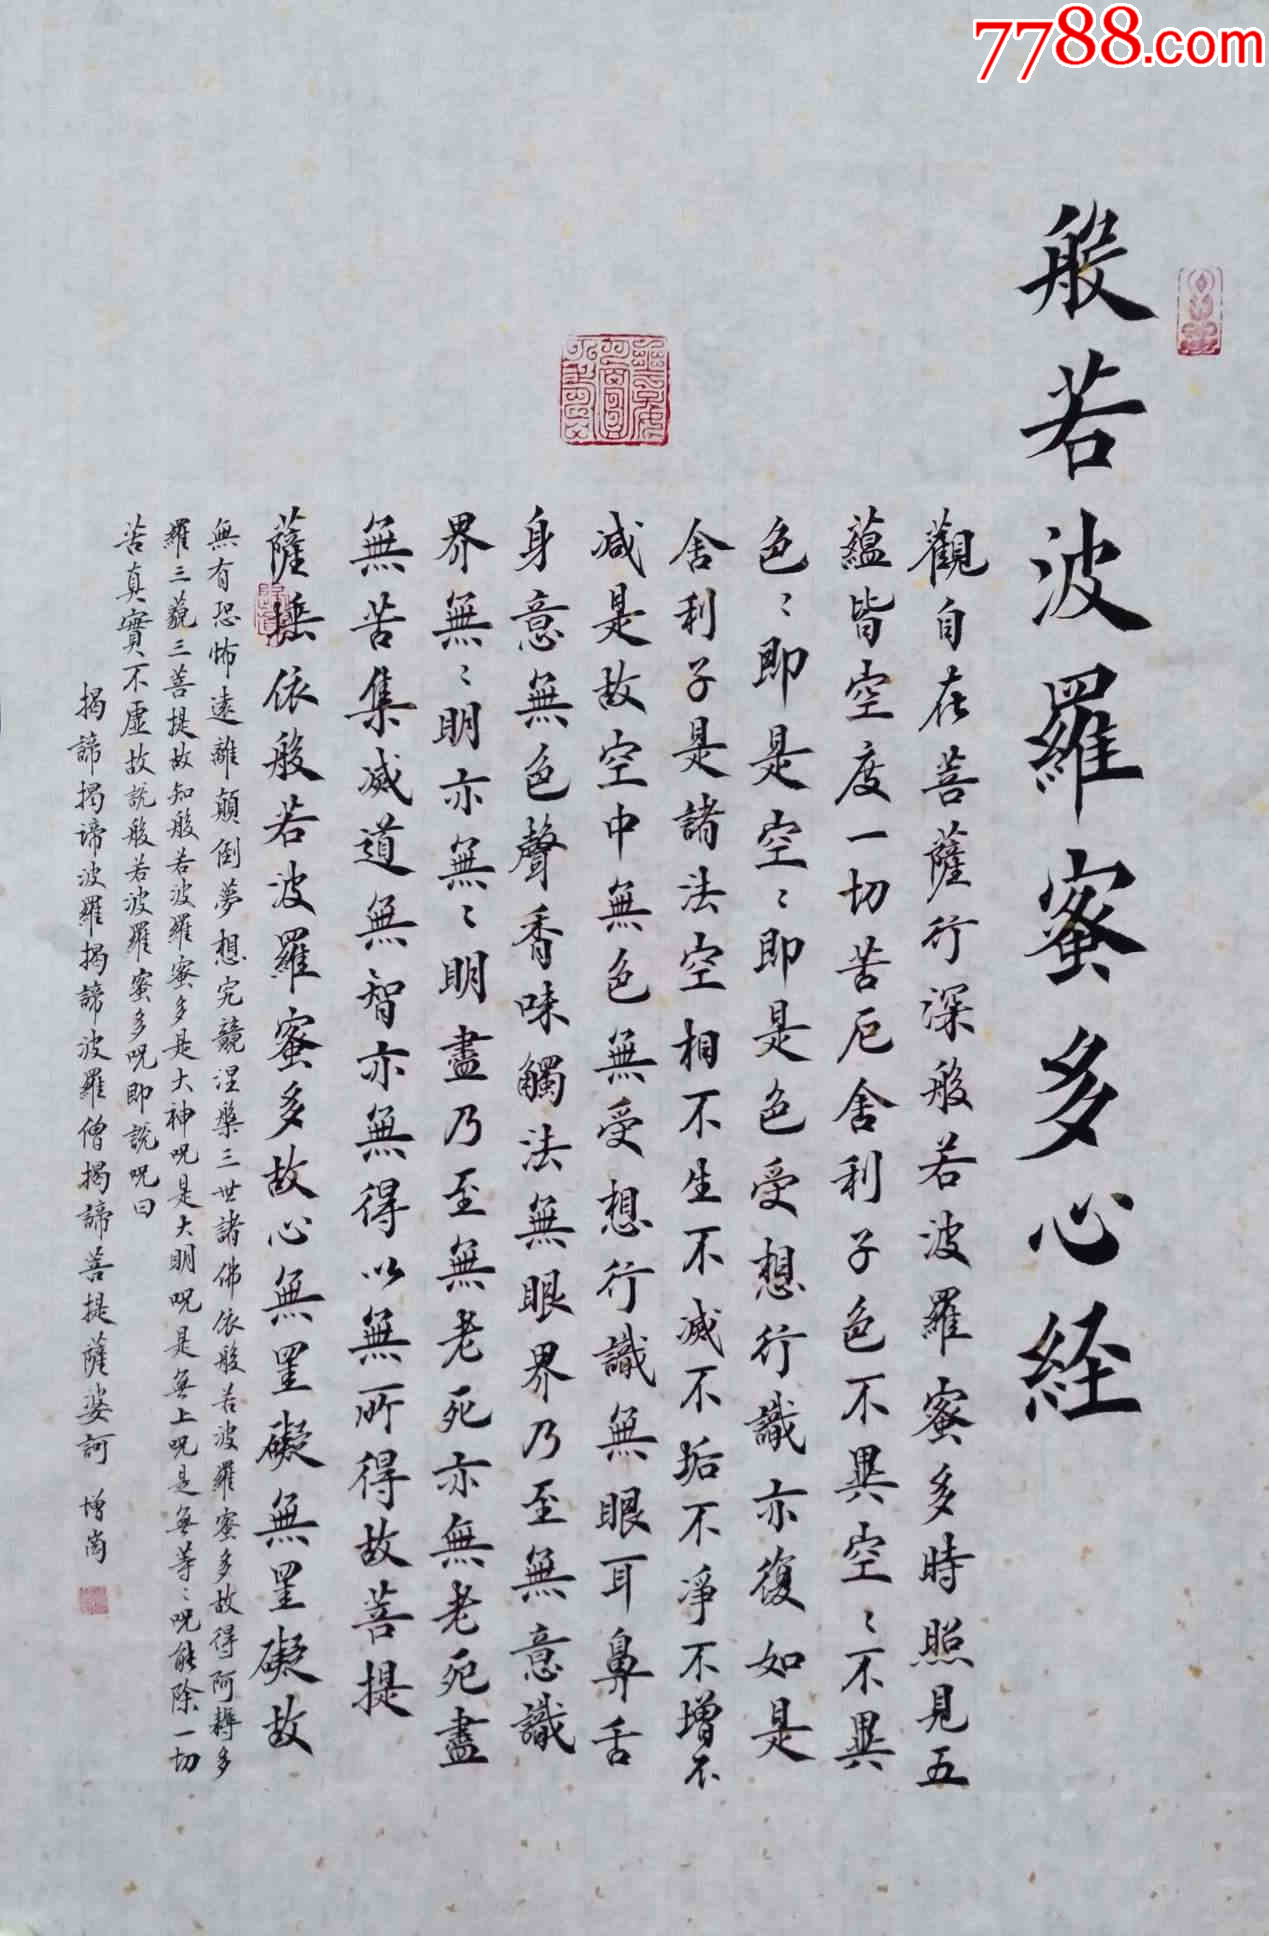 7788.com
般若波羅蜜多心経
觀自在菩薩行深般若波羅蜜多時照見五
蘊皆空度一切苦厄舍利子色不異空〻不異
色〻即是空〻即是色受想行識亦復如是
舍利子是諸法空相不生不滅不垢不淨不增不
减是故空中無色無受想行識無眼耳鼻舌
身意無色聲香味觸法無眼界乃至無意識
界無〻明亦無〻明盡乃至無老死亦無老死盡
無苦集滅道無智亦無得以無所得故菩提
薩埵依般若波羅蜜多故心無罣礙無罣礙故
無有恐怖遠離顛倒夢想究竟涅槃三世諸佛依般若波羅蜜多故得阿耨多
羅三藐三菩提故知般若波羅蜜多是大神咒是大明咒是無上咒是無等〻咒能除一切
苦真實不虛故説般若波羅蜜多咒即説咒曰
揭諦揭諦波羅揭諦波羅僧揭諦菩提薩婆訶 增尚